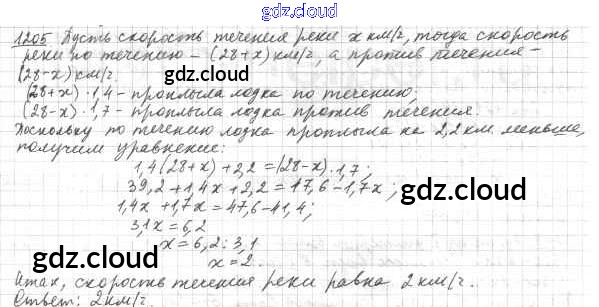 gdz.cloud
1205 Пусть скорость течения реки x км/ч, тогда скорость
реки по течению – (28+x) км/ч, а против течения –
(28-x) км/ч.
gdz.cloud
(28+x) · 1,4 – проплыла лодка по течению,
(28-x) · 1,7 – проплыла лодка против течения.
Поскольку по течению лодка проплыла на 2,2 км меньше,
получим уравнение:
1,4(28+x) + 2,2 = (28-x) · 1,7;
gdz.cloud
39,2 + 1,4x + 2,2 = 47,6 - 1,7x;
gdz.cloud
1,4x + 1,7x = 47,6 - 41,4;
3,1x = 6,2
gdz.cloud
x = 6,2 : 3,1
gdz.cloud
x = 2.
Итак, скорость течения реки равна 2 км/ч.
Ответ: 2 км/ч.